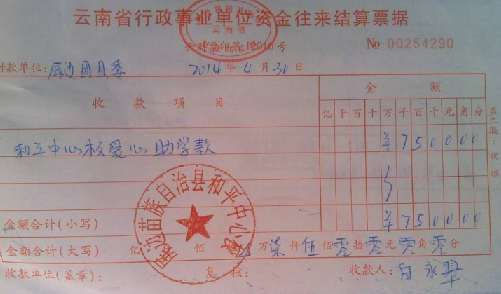 云南省行政事业单位资金往来结算票据
No 00254290
付款单位:屏边团县委 2014年4月30日
收款项目 金额
亿千百十万千百十元角分
和平中心校爱心助学款 ¥750000
金额合计(小写) ¥750000
金额合计(大写) 亿 佰 万柒仟伍佰零拾零元零角零分
屏边苗族自治县和平中心校
收款单位(盖章): 复核: 收款人: